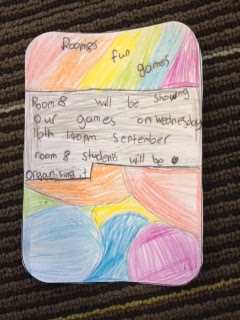 Room8
fun
games
Room 8 will be showing
our games on wednesday
16th 1:40pm September
room 8 students will be
Organising it